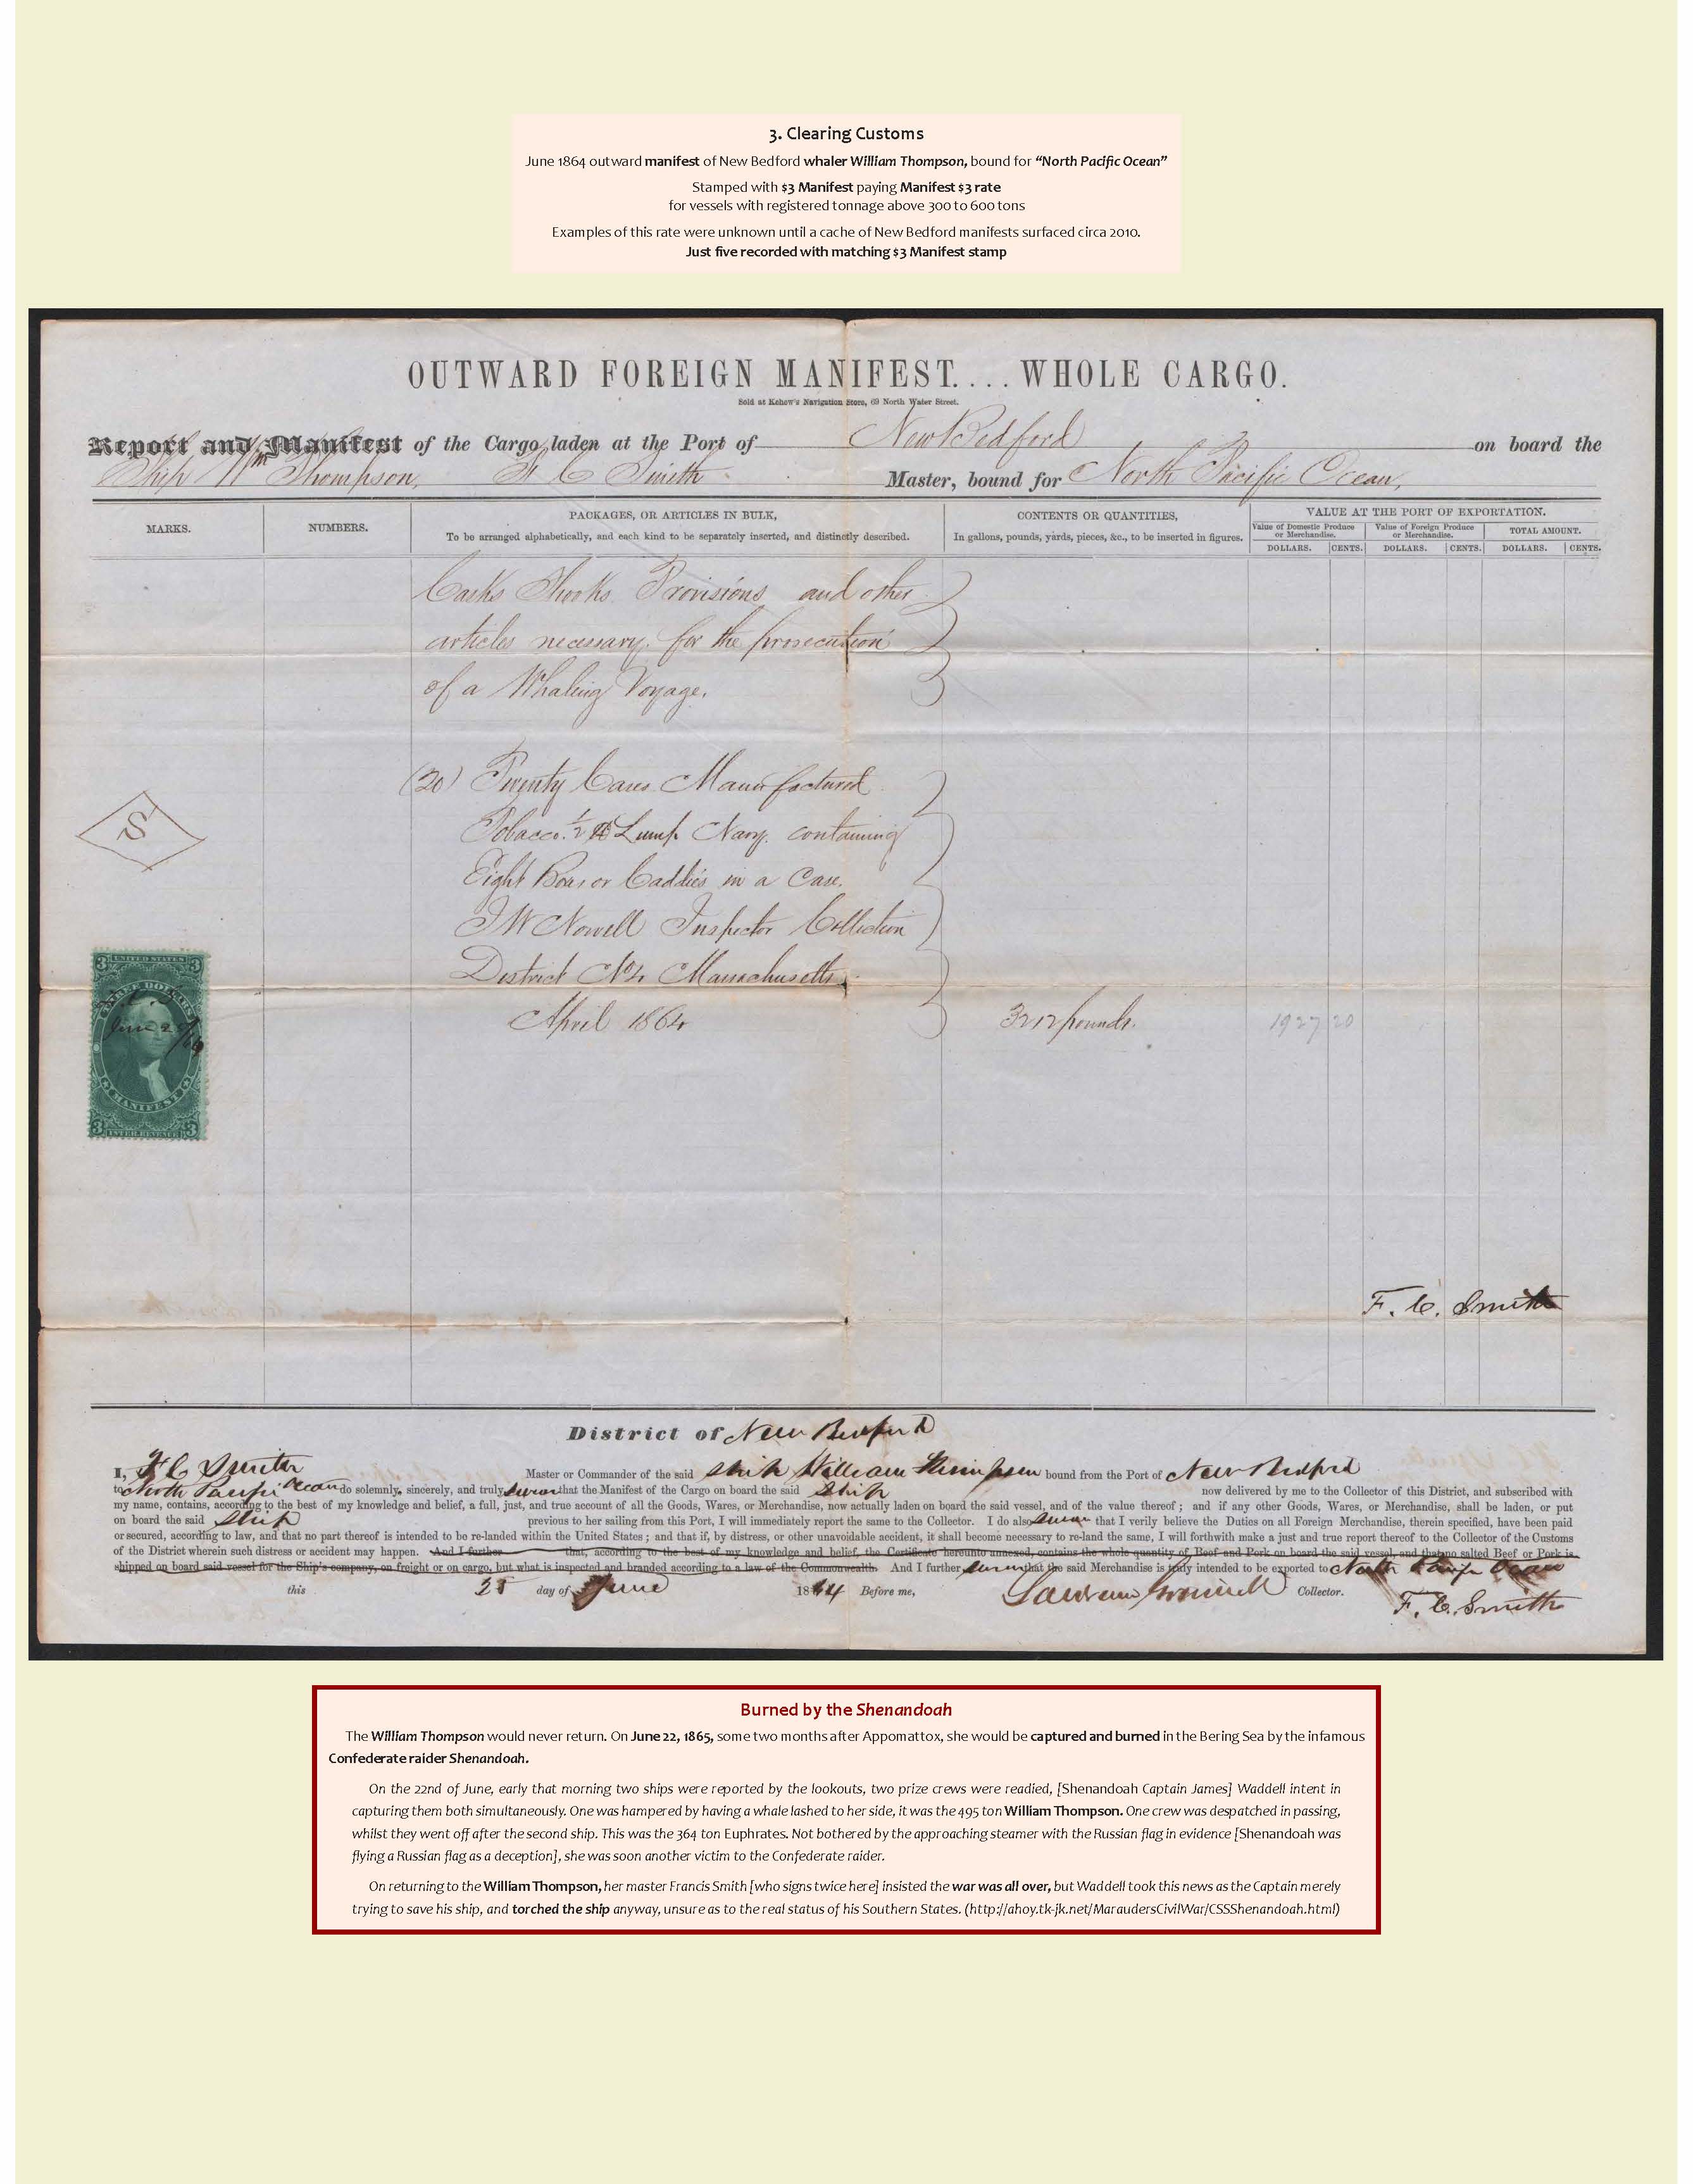 3. Clearing Customs
June 1864 outward manifest of New Bedford whaler William Thompson, bound for “North Pacific Ocean”
Stamped with $3 Manifest paying Manifest $3 rate
for vessels with registered tonnage above 300 to 600 tons
Examples of this rate were unknown until a cache of New Bedford manifests surfaced circa 2010.
Just five recorded with matching $3 Manifest stamp
OUTWARD FOREIGN MANIFEST.... WHOLE CARGO.
Sold at Kehew's Navigation Store, 69 North Water Street.
Report and Manifest of the Cargo laden at the Port of New Bedford on board the
Ship Wm Thompson, F C Smith Master, bound for North Pacific Ocean,
MARKS. NUMBERS. PACKAGES, OR ARTICLES IN BULK, CONTENTS OR QUANTITIES, VALUE AT THE PORT OF EXPORTATION.
To be arranged alphabetically, and each kind to be separately inserted, and distinctly described. In gallons, pounds, yards, pieces, &c., to be inserted in figures. Value of Domestic Produce or Merchandise. Value of Foreign Produce or Merchandise. TOTAL AMOUNT.
DOLLARS. CENTS. DOLLARS. CENTS. DOLLARS. CENTS.
Casks Shooks Provisions and other
articles necessary for the prosecution
of a Whaling Voyage.
(20) Twenty Cases Manufactured
S
Tobacco. 1/2 lb Lump Navy. containing
Eight Boxes or Caddies in a Case.
J W Nowell Inspector Collection
District No 1. Massachusetts
April 1864 3212 pounds. 1927 20
3 UNITED STATES 3
THREE DOLLARS
June 25/64
MANIFEST
3 INTER. REVENUE 3
F. C. Smith
District of New Bedford
I, F C Smith Master or Commander of the said Ship William Thompson bound from the Port of New Bedford
to North Pacific Ocean do solemnly, sincerely, and truly swear that the Manifest of the Cargo on board the said Ship now delivered by me to the Collector of this District, and subscribed with
my name, contains, according to the best of my knowledge and belief, a full, just, and true account of all the Goods, Wares, or Merchandise, now actually laden on board the said vessel, and of the value thereof ; and if any other Goods, Wares, or Merchandise, shall be laden, or put
on board the said Ship previous to her sailing from this Port, I will immediately report the same to the Collector. I do also swear that I verily believe the Duties on all Foreign Merchandise, therein specified, have been paid
or secured, according to law, and that no part thereof is intended to be re-landed within the United States ; and that if, by distress, or other unavoidable accident, it shall become necessary to re-land the same, I will forthwith make a just and true report thereof to the Collector of the Customs
of the District wherein such distress or accident may happen. And I further that, according to the best of my knowledge and belief, the Certificate hereunto annexed, contains the whole quantity of Beef and Pork on board the said vessel, and that no salted Beef or Pork is
shipped on board said vessel for the Ship's company, on freight or on cargo, but what is inspected and branded according to a law of the Commonwealth. And I further swear that the said Merchandise is truly intended to be exported to North Pacific Ocean
this 25 day of June 1864 Before me, Lawrence Grinnell Collector.
F. C. Smith
Burned by the Shenandoah
The William Thompson would never return. On June 22, 1865, some two months after Appomattox, she would be captured and burned in the Bering Sea by the infamous
Confederate raider Shenandoah.
On the 22nd of June, early that morning two ships were reported by the lookouts, two prize crews were readied, [Shenandoah Captain James] Waddell intent in
capturing them both simultaneously. One was hampered by having a whale lashed to her side, it was the 495 ton William Thompson. One crew was despatched in passing,
whilst they went off after the second ship. This was the 364 ton Euphrates. Not bothered by the approaching steamer with the Russian flag in evidence [Shenandoah was
flying a Russian flag as a deception], she was soon another victim to the Confederate raider.
On returning to the William Thompson, her master Francis Smith [who signs twice here] insisted the war was all over, but Waddell took this news as the Captain merely
trying to save his ship, and torched the ship anyway, unsure as to the real status of his Southern States. (http://ahoy.tk-jk.net/MaraudersCivilWar/CSSShenandoah.html)